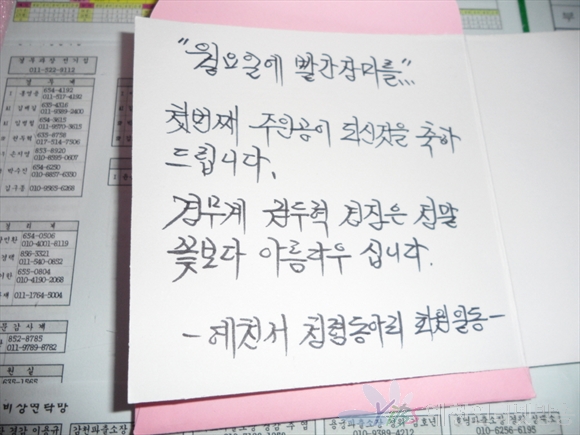 "월요일에 빨간장미를"...
첫번째 주인공이 되신것을 축하
드립니다.
경무계 김두혁 팀장은 정말
꽃보다 아름다우 십니다.
- 제천서 청렴동아리 회원일동 -
011-522-8112
경 무 계
654-4192
011-517-4192
655-4316
011-9389-2400
654-3615
011-9570-3615
655-8756
017-514-7506
853-6920
010-6395-0607
654-6250
010-8857-6330
010-9565-6268
경 리 계
654-0506
010-4001-6119
836-3321
011-540-0632
655-0804
010-4190-2068
011-1764-5004
문 감 사 계
852-8785
011-9789-8782
비상연락망
010-9389-4212
010-6256-6195